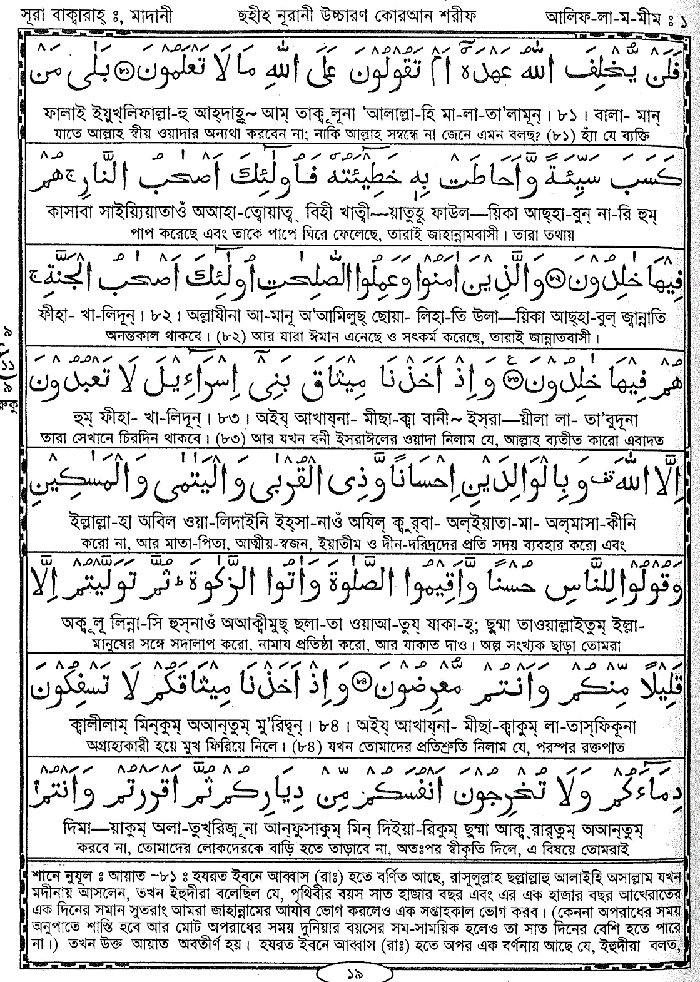 সূরা বাক্বারাহ্ ঃ, মাদানী ছহীহ্ নূরানী উচ্চারণ কোরআন শরীফ আলিফ-লা-ম-মীম ঃ ১
فَلَنْ يُّخْلِفَ اللّٰهُ عَهْدَهٗٓ اَمْ تَقُوْلُوْنَ عَلَى اللّٰهِ مَا لَا تَعْلَمُوْنَ ۝٨٠ بَلٰى مَنْ
ফালাই ইয়ুখ্‌লিফাল্লা-হু আহ্‌দাহূ~ আম্ তাক্বূলূনা 'আলাল্লা-হি মা-লা-তা'লামূন্। ৮১। বালা- মান্
যাতে আল্লাহ স্বীয় ওয়াদার অন্যথা করবেন না; নাকি আল্লাহ সম্বন্ধে না জেনে এমন বলছ? (৮১) হ্যাঁ যে ব্যক্তি
كَسَبَ سَيِّئَةً وَّاَحَاطَتْ بِهٖ خَطِيْٓئَتُهٗ فَاُولٰٓئِكَ اَصْحٰبُ النَّارِ ج هُمْ
কাসাবা সাইয়্যিয়াতাওঁ অআহা-ত্বোয়াত্ব্ বিহী খাত্বী~~য়াতুহূ ফাউলা—য়িকা আছ্‌হা-বুন্ না-রি হুম্
পাপ করেছে এবং তাকে পাপে ঘিরে ফেলেছে, তারাই জাহান্নামবাসী। তারা তথায়
فِيْهَا خٰلِدُوْنَ ۝٨١ وَالَّذِيْنَ اٰمَنُوْا وَعَمِلُوا الصّٰلِحٰتِ اُولٰٓئِكَ اَصْحٰبُ الْجَنَّةِ ج
ফীহা- খা-লিদূন্। ৮২। অল্লাযীনা আ-মানূ অ'আমিলুছ্ ছোয়া- লিহা-তি উলা—য়িকা আছ্‌হা-বুল্ জ্বান্নাতি
অনন্তকাল থাকবে। (৮২) আর যারা ঈমান এনেছে ও সৎকর্ম করেছে, তারাই জান্নাতবাসী।
هُمْ فِيْهَا خٰلِدُوْنَ ۝٨٢ ع وَاِذْ اَخَذْنَا مِيْثَاقَ بَنِيْٓ اِسْرَآءِيْلَ لَا تَعْبُدُوْنَ
৯
১১
৯
রুকু
হুম্ ফীহা- খা-লিদূন্। ৮৩। অইয্ আখায্‌না- মীছা-ক্বা বানী~ ইস্‌রা—য়ীলা লা- তা'বুদূনা
তারা সেখানে চিরদিন থাকবে। (৮৩) আর যখন বনী ইসরাঈলের ওয়াদা নিলাম যে, আল্লাহ ব্যতীত কারো এবাদত
اِلَّا اللّٰهَ قف وَبِالْوَالِدَيْنِ اِحْسَانًا وَّذِى الْقُرْبٰى وَالْيَتٰمٰى وَالْمَسٰكِيْنِ
ইল্লাল্লা-হা অবিল ওয়া-লিদাইনি ইহ্‌সা-নাওঁ অযিল্ ক্বুর্‌বা- অল্‌ইয়াতা-মা- অল্‌মাসা-কীনি
করো না, আর মাতা-পিতা, আত্মীয়-স্বজন, ইয়াতীম ও দীন-দরিদ্রদের প্রতি সদয় ব্যবহার করো এবং
وَقُوْلُوْا لِلنَّاسِ حُسْنًا وَّاَقِيْمُوا الصَّلٰوةَ وَاٰتُوا الزَّكٰوةَ ط ثُمَّ تَوَلَّيْتُمْ اِلَّا
অক্বূলূ লিন্না-সি হুস্‌নাওঁ অআক্বীমুছ্ ছলা-তা ওয়াআ-তুয্ যাকা-হ্; ছুম্মা তাওয়াল্লাইতুম্ ইল্লা-
মানুষের সঙ্গে সদালাপ করো, নামায প্রতিষ্ঠা করো, আর যাকাত দাও। অল্প সংখ্যক ছাড়া তোমরা
قَلِيْلًا مِّنْكُمْ وَاَنْتُمْ مُّعْرِضُوْنَ ۝٨٣ وَاِذْ اَخَذْنَا مِيْثَاقَكُمْ لَا تَسْفِكُوْنَ
ক্বালীলাম্ মিন্‌কুম্ অআন্‌তুম্ মু'রিদ্বূন্। ৮৪। অইয্ আখায্‌না- মীছা-ক্বাকুম্ লা-তাস্‌ফিকূনা
অগ্রাহ্যকারী হয়ে মুখ ফিরিয়ে নিলে। (৮৪) যখন তোমাদের প্রতিশ্রুতি নিলাম যে, পরস্পর রক্তপাত
دِمَآءَكُمْ وَلَا تُخْرِجُوْنَ اَنْفُسَكُمْ مِّنْ دِيَارِكُمْ ثُمَّ اَقْرَرْتُمْ وَاَنْتُمْ
দিমা—য়াকুম্ অলা-তুখ্‌রিজূ্না আন্‌ফুসাকুম্ মিন্ দিইয়া-রিকুম্ ছুম্মা আক্ব্‌রার্‌তুম্ অআন্‌তুম্
করবে না, তোমাদের লোকদেরকে বাড়ি হতে তাড়াবে না, অতঃপর স্বীকৃতি দিলে, এ বিষয়ে তোমরাই
শানে নুযূল ঃ আয়াত -৮১ ঃ হযরত ইবনে আব্বাস (রাঃ) হতে বর্ণিত আছে, রাসূলুল্লাহ ছল্লাল্লাহু আলাইহি অসাল্লাম যখন
মদীনায় আসলেন, তখন ইহুদীরা বলেছিল যে, পৃথিবীর বয়স সাত হাজার বছর এবং এর এক হাজার বছর আখেরাতের
এক দিনের সমান সুতরাং আমরা জাহান্নামের আযাব ভোগ করলেও এক সপ্তাহকাল ভোগ করব। (কেননা অপরাধের সময়
অনুপাতে শাস্তি হবে আর মোট অপরাধের সময় দুনিয়ার বয়সের সম-সাময়িক হলেও তা সাত দিনের বেশি হতে পারে
না।) তখন উক্ত আয়াত অবতীর্ণ হয়। হযরত ইবনে আব্বাস (রাঃ) হতে অপর এক বর্ণনায় আছে যে, ইহুদীরা বলত,
১৯